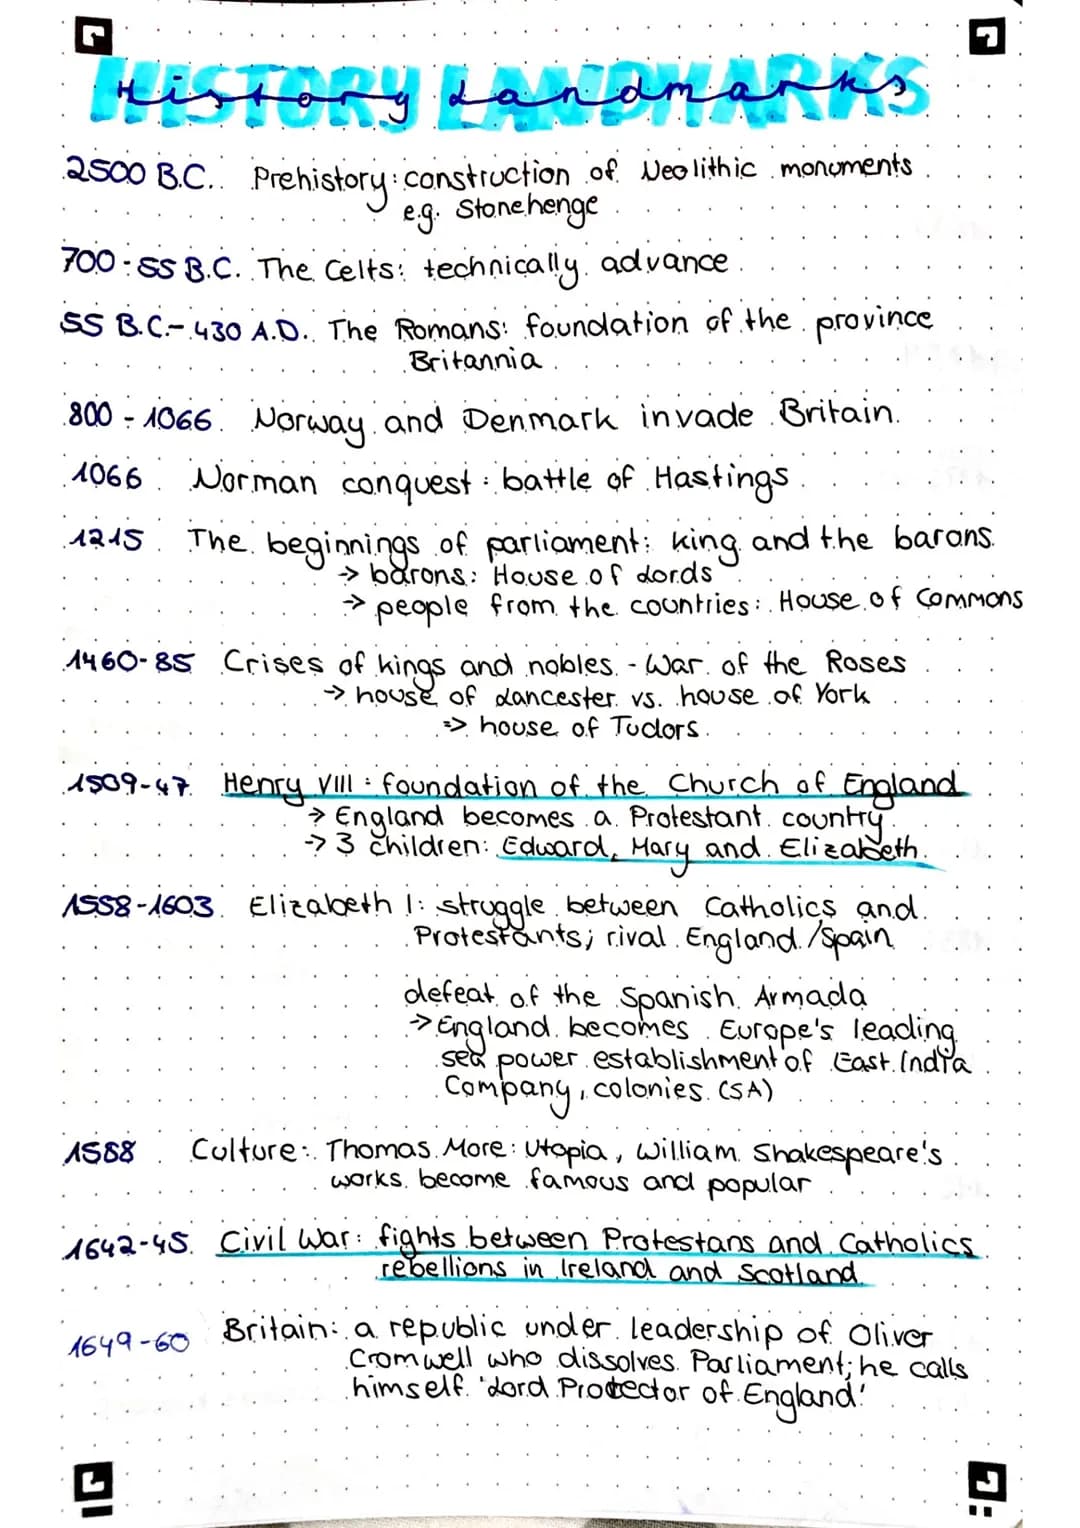 HISTORY LANDMARKS
History Landmarks
2500 B.C. Prehistory: construction of Neolithic monuments
e.g. Stonehenge
700-55 B.C. The Celts: technically advance
55 B.C.-430 A.D. The Romans: foundation of the province
Britannia
800-1066 Norway and Denmark invade Britain.
1066 Norman conquest: battle of Hastings
1215 The beginnings of parliament: king and the barons
→ barons: House of Lords
→ people from the countries: House of Commons
1460-85 Crises of kings and nobles - War of the Roses
→ house of Lancester vs. house of York
=> house of Tudors
1509-47 Henry VIII: foundation of the Church of England
→ England becomes a Protestant country
→ 3 children: Edward, Mary and Elizabeth
1558-1603 Elizabeth I: struggle between Catholics and
Protestants; rival England/Spain
defeat of the Spanish Armada
→ England becomes Europe's leading
sea power establishment of East India
Company, colonies (SA)
1588 Culture: Thomas More: Utopia, William Shakespeare's
works become famous and popular
1642-45 Civil War: fights between Protestans and Catholics
rebellions in Ireland and Scotland
1649-60 Britain: a republic under leadership of Oliver
Cromwell who dissolves Parliament; he calls
himself 'Lord Protector of England'